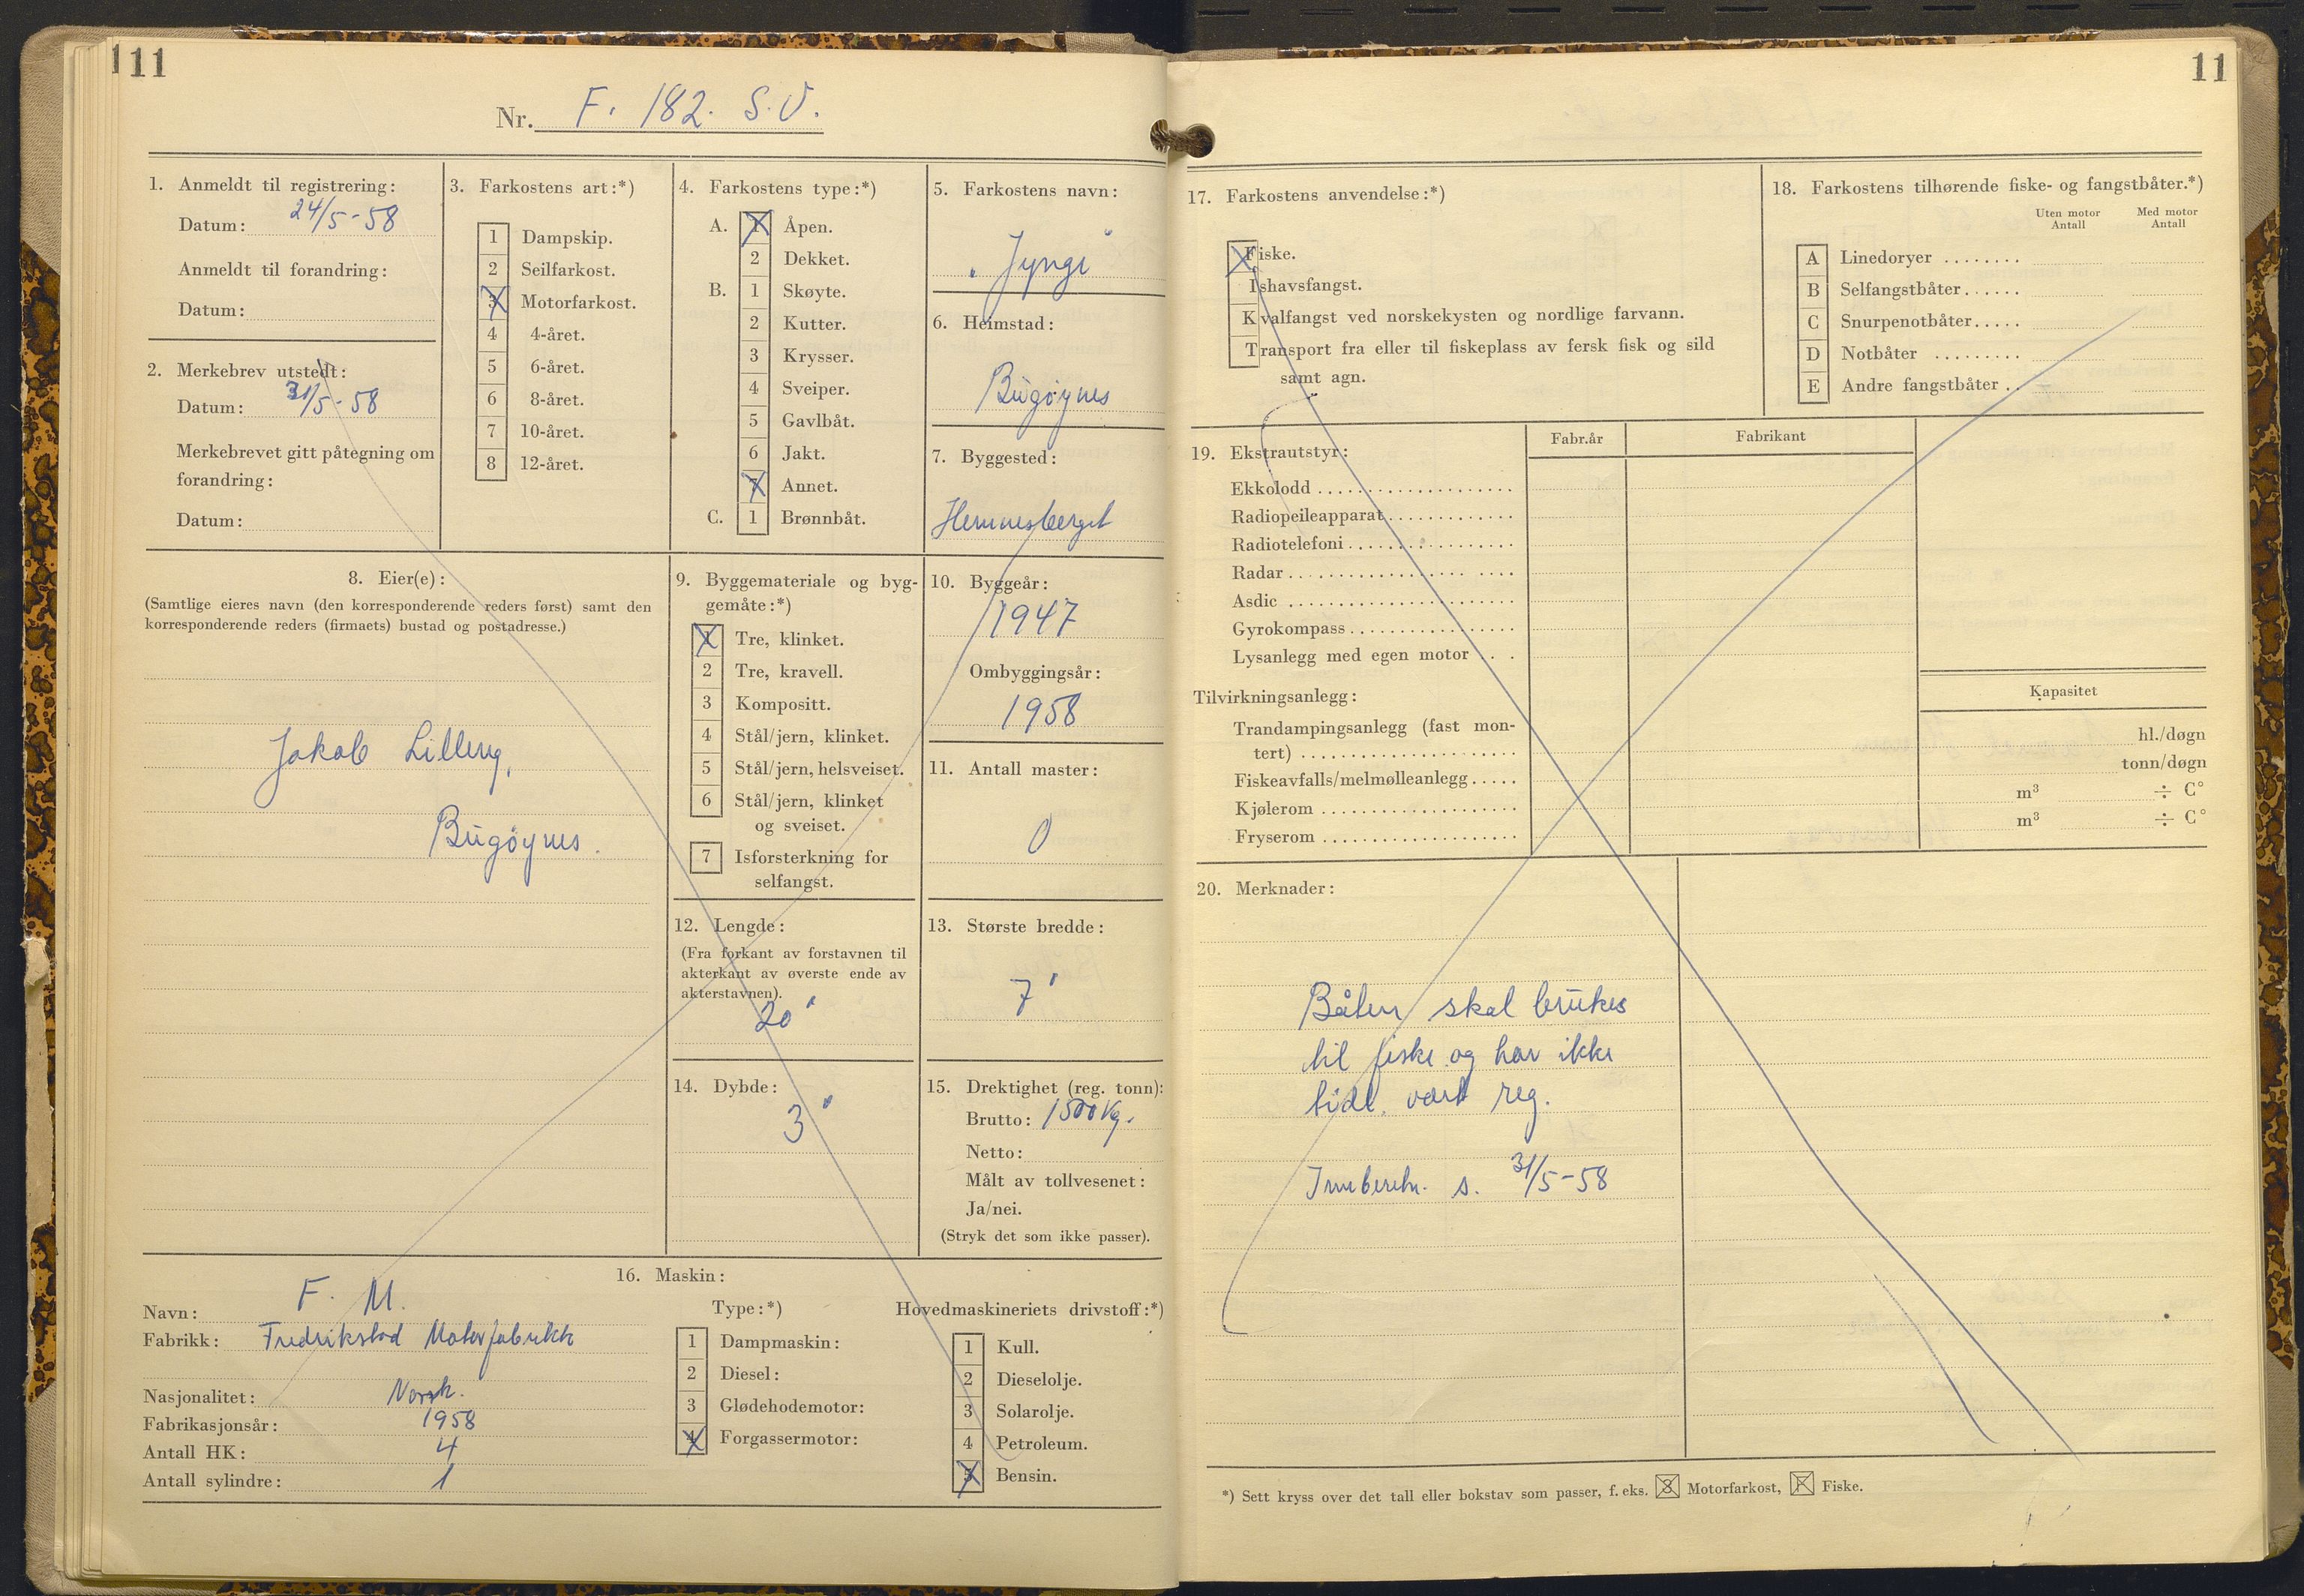 11
Nr. F. 182. S.V.
1. Anmeldt til registrering:
Datum: 24/5-58
Anmeldt til forandring:
Datum:
2. Merkebrev utstedt:
Datum: 31/5-58
Merkebrevet gitt påtegning om
forandring:
Datum:
3. Farkostens art:*)
1 Dampskip.
2 Seilfarkost.
3 Motorfarkost.
4 4-året.
5 6-året.
6 8-året.
7 10-året.
8 12-året.
4. Farkostens type:*)
A. 1 Åpen.
2 Dekket.
B. 1 Skøyte.
2 Kutter.
3 Krysser.
4 Sveiper.
5 Gavlbåt.
6 Jakt.
7 Annet.
C. 1 Brønnbåt.
5. Farkostens navn:
"Jyngi"
6. Heimstad:
Bugøynes
7. Byggested:
Hemnesberget
8. Eier(e):
(Samtlige eieres navn (den korresponderende reders først) samt den
korresponderende reders (firmaets) bustad og postadresse.)
Jakob
Bugøynes.
9. Byggemateriale og byg-
gemåte:*)
1 Tre, klinket.
2 Tre, kravell.
3 Kompositt.
4 Stål/jern, klinket.
5 Stål/jern, helsveiset.
6 Stål/jern, klinket
og sveiset.
7 Isforsterkning for
selfangst.
10. Byggeår:
1947
Ombyggingsår:
1958
11. Antall master:
0
12. Lengde:
(Fra forkant av forstavnen til
akterkant av øverste ende av
akterstavnen).
20'
13. Største bredde:
7'
14. Dybde:
3'
15. Drektighet (reg. tonn):
Brutto: 1500 kg.
Netto:
Målt av tollvesenet:
Ja/nei.
(Stryk det som ikke passer).
16. Maskin:
Navn: F. M.
Fabrikk: Fredrikstad Motorfabrikk
Nasjonalitet: Norsk.
Fabrikasjonsår: 1958
Antall HK: 4
Antall sylindre: 1
Type:*)
1 Dampmaskin:
2 Diesel:
3 Glødehodemotor:
4 Forgassermotor:
Hovedmaskineriets drivstoff:*)
1 Kull.
2 Dieselolje.
3 Solarolje.
4 Petroleum.
5 Bensin.
11
17. Farkostens anvendelse:*)
Fiske.
Ishavsfangst.
Kvalfangst ved norskekysten og nordlige farvann.
Transport fra eller til fiskeplass av fersk fisk og sild
samt agn.
18. Farkostens tilhørende fiske- og fangstbåter.*)
Uten motor Med motor
Antall Antall
A Linedoryer ........
B Selfangstbåter......
C Snurpenotbåter.....
D Notbåter .........
E Andre fangstbåter ..
19. Ekstrautstyr:
Fabr.år Fabrikant
Ekkolodd ....................
Radiopeileapparat.............
Radiotelefoni.................
Radar.......................
Asdic .......................
Gyrokompass.................
Lysanlegg med egen motor ...
Tilvirkningsanlegg:
Kapasitet
Trandampingsanlegg (fast mon-
tert) ...................... hl./døgn
Fiskeavfalls/melmølleanlegg..... tonn/døgn
Kjølerom .................... m³ ÷ C°
Fryserom .................... m³ ÷ C°
20. Merknader:
Båten skal brukes
til fiske og har ikke
tidl. vært reg.
Innberetn. s. 31/5-58
*) Sett kryss over det tall eller bokstav som passer, f. eks. 3 Motorfarkost, F Fiske.